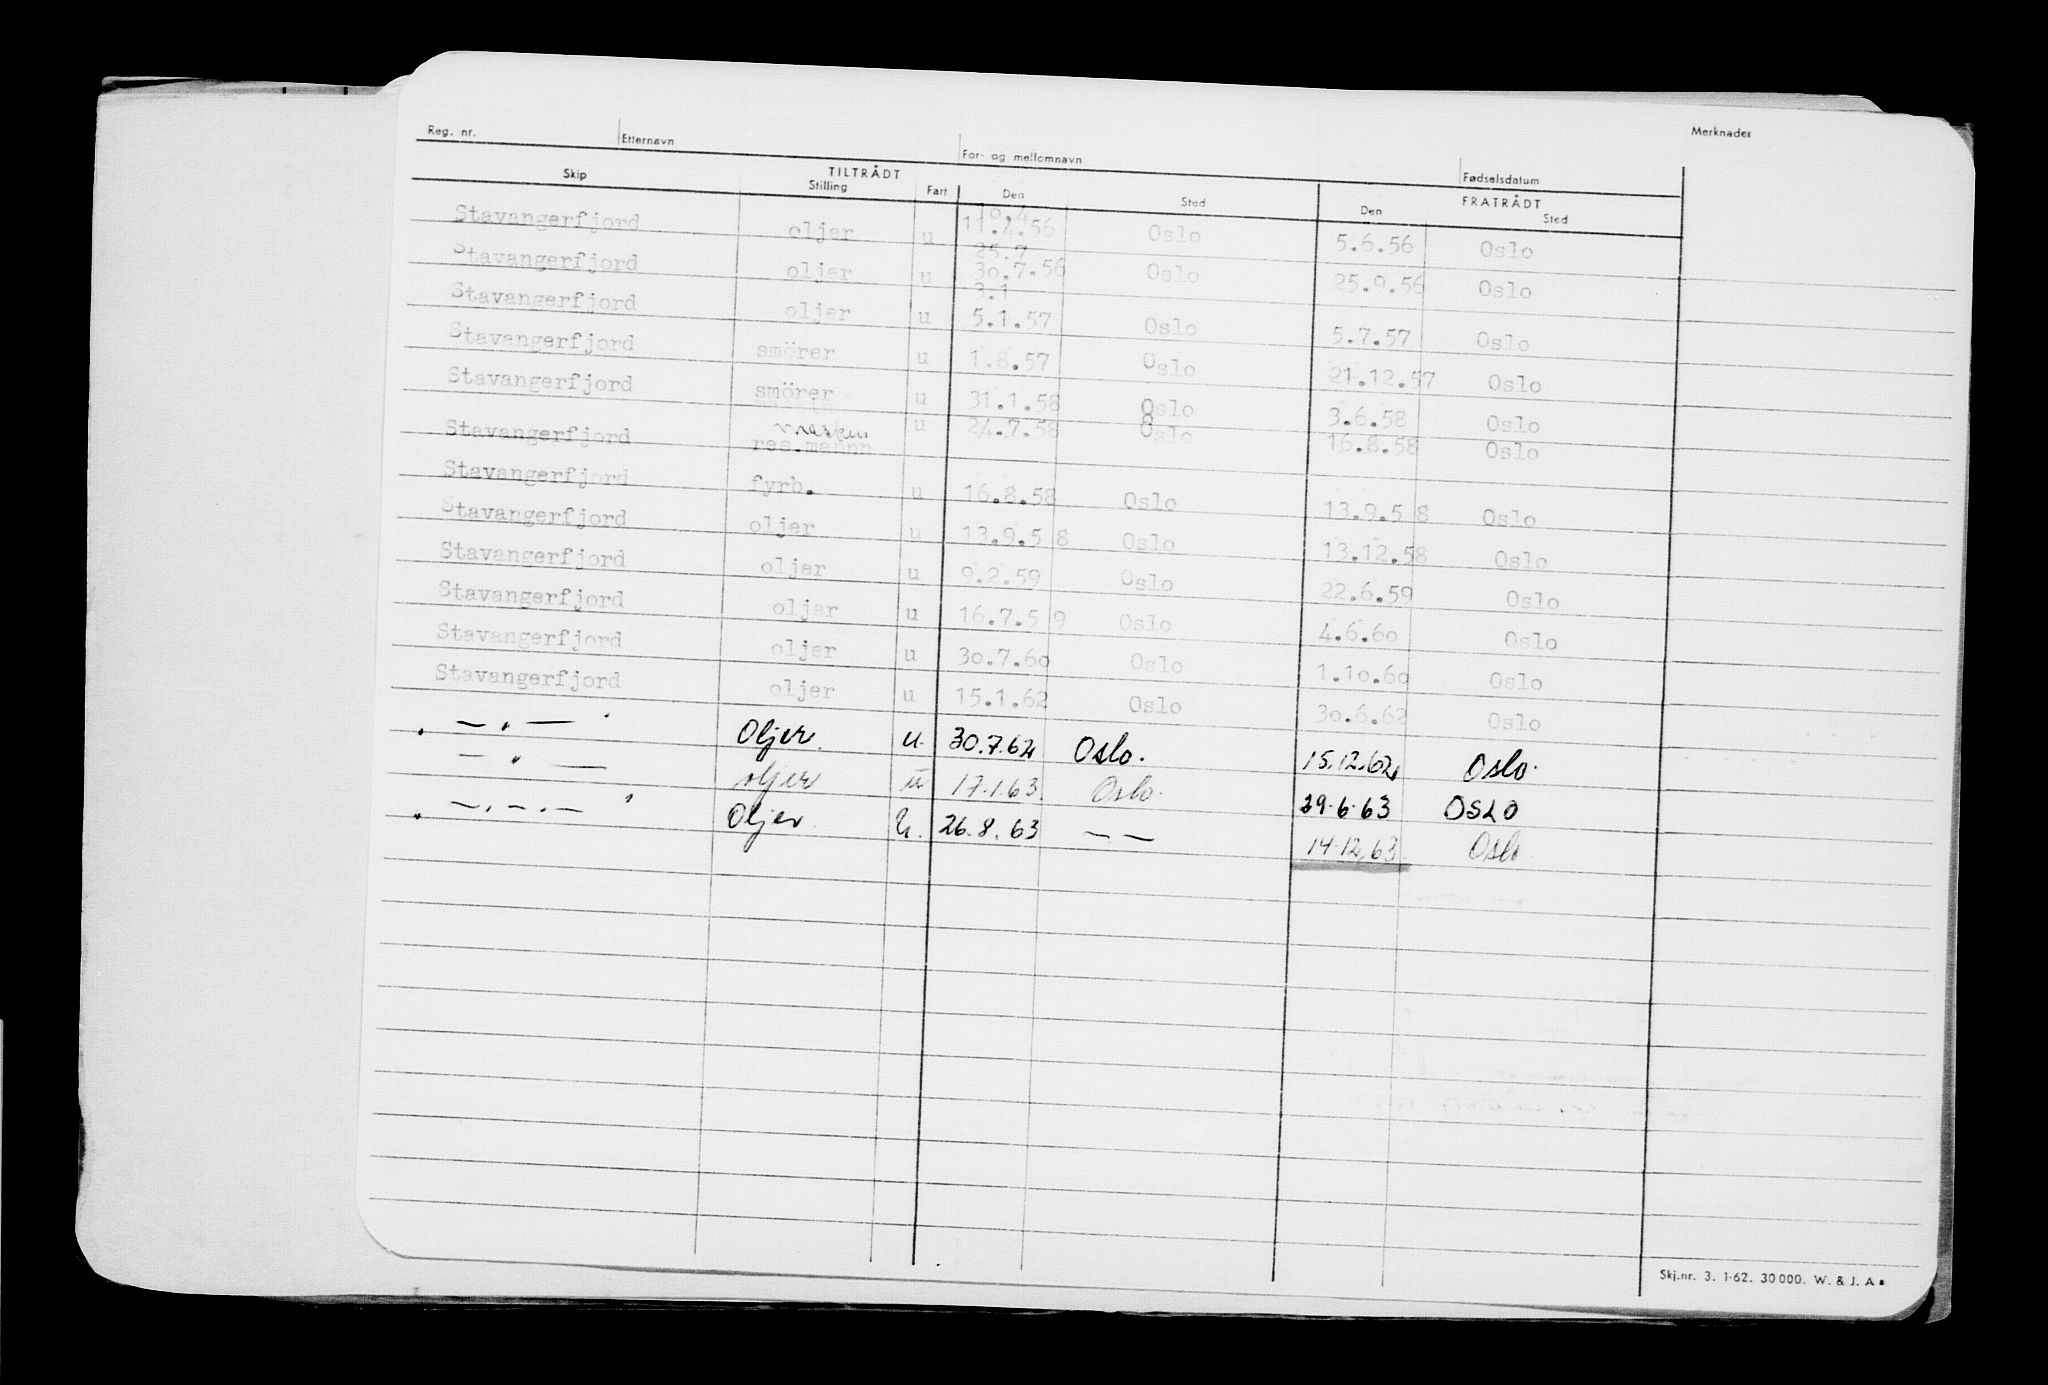 Reg. nr. Etternavn For- og mellomnavn Fødselsdatum Merknader
TILTRÅDT FRATRÅDT
Skip Stilling Fart Den Sted Den Sted
Stavangerfjord oljer u 11.4.56 Oslo 5.6.56 Oslo
25.7
Stavangerfjord oljer u 30.7.56 Oslo 25.9.56 Oslo
3.1
Stavangerfjord oljer u 5.1.57 Oslo 5.7.57 Oslo
Stavangerfjord smörer u 1.8.57 Oslo 21.12.57 Oslo
Stavangerfjord smörer u 31.1.58 Oslo 3.6.58 Oslo
Stavangerfjord u 24.7.58 Oslo 16.8.58 Oslo
res.mannn
Stavangerfjord fyrb. u 16.8.58 Oslo 13.9.58 Oslo
Stavangerfjord oljer u 13.9.58 Oslo 13.12.58 Oslo
Stavangerfjord oljer u 9.2.59 Oslo 22.6.59 Oslo
Stavangerfjord oljer u 16.7.59 Oslo 4.6.60 Oslo
Stavangerfjord oljer u 30.7.60 Oslo 1.10.60 Oslo
Stavangerfjord oljer u 15.1.62 Oslo 30.6.62 Oslo
— " — Oljer. u. 30.7.62 Oslo. 15.12.62 Oslo.
— " — oljer u 17.1.63. Oslo. 29.6.63 OSLO
—.—.— Oljer. u. 26.8.63 — — 14.12.63. Oslo.
Skj.nr. 3. 1-62. 30 000. W. & J. A s